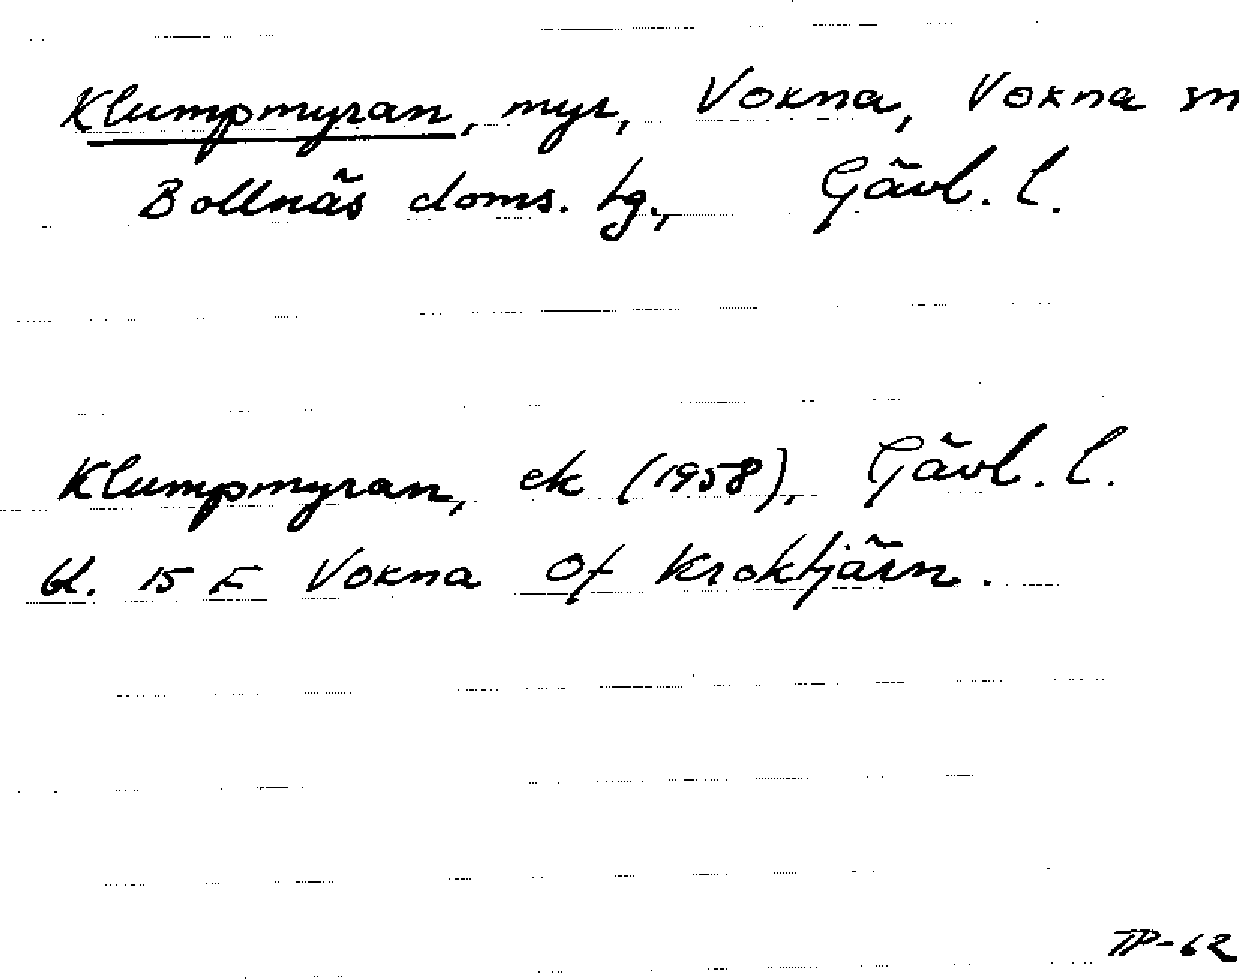 Klumpmyran, myr, Voxna, Voxna sn
Bollnäs doms. tg., Gävl. l.
Klumpmyran, ek (1958), Gävl. l.
bl. 15 E Voxna Of Kroktjärn.
TP-62